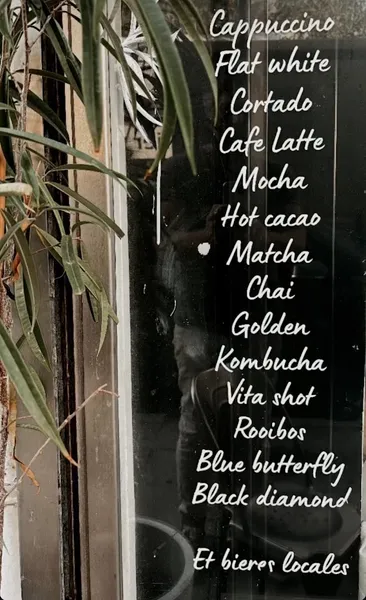 Cappuccino
Flat white
Cortado
Cafe Latte
Mocha
Hot cacao
Matcha
Chai
Golden
Kombucha
Vita shot
Rooibos
Blue butterfly
Black diamond
Et bieres locales